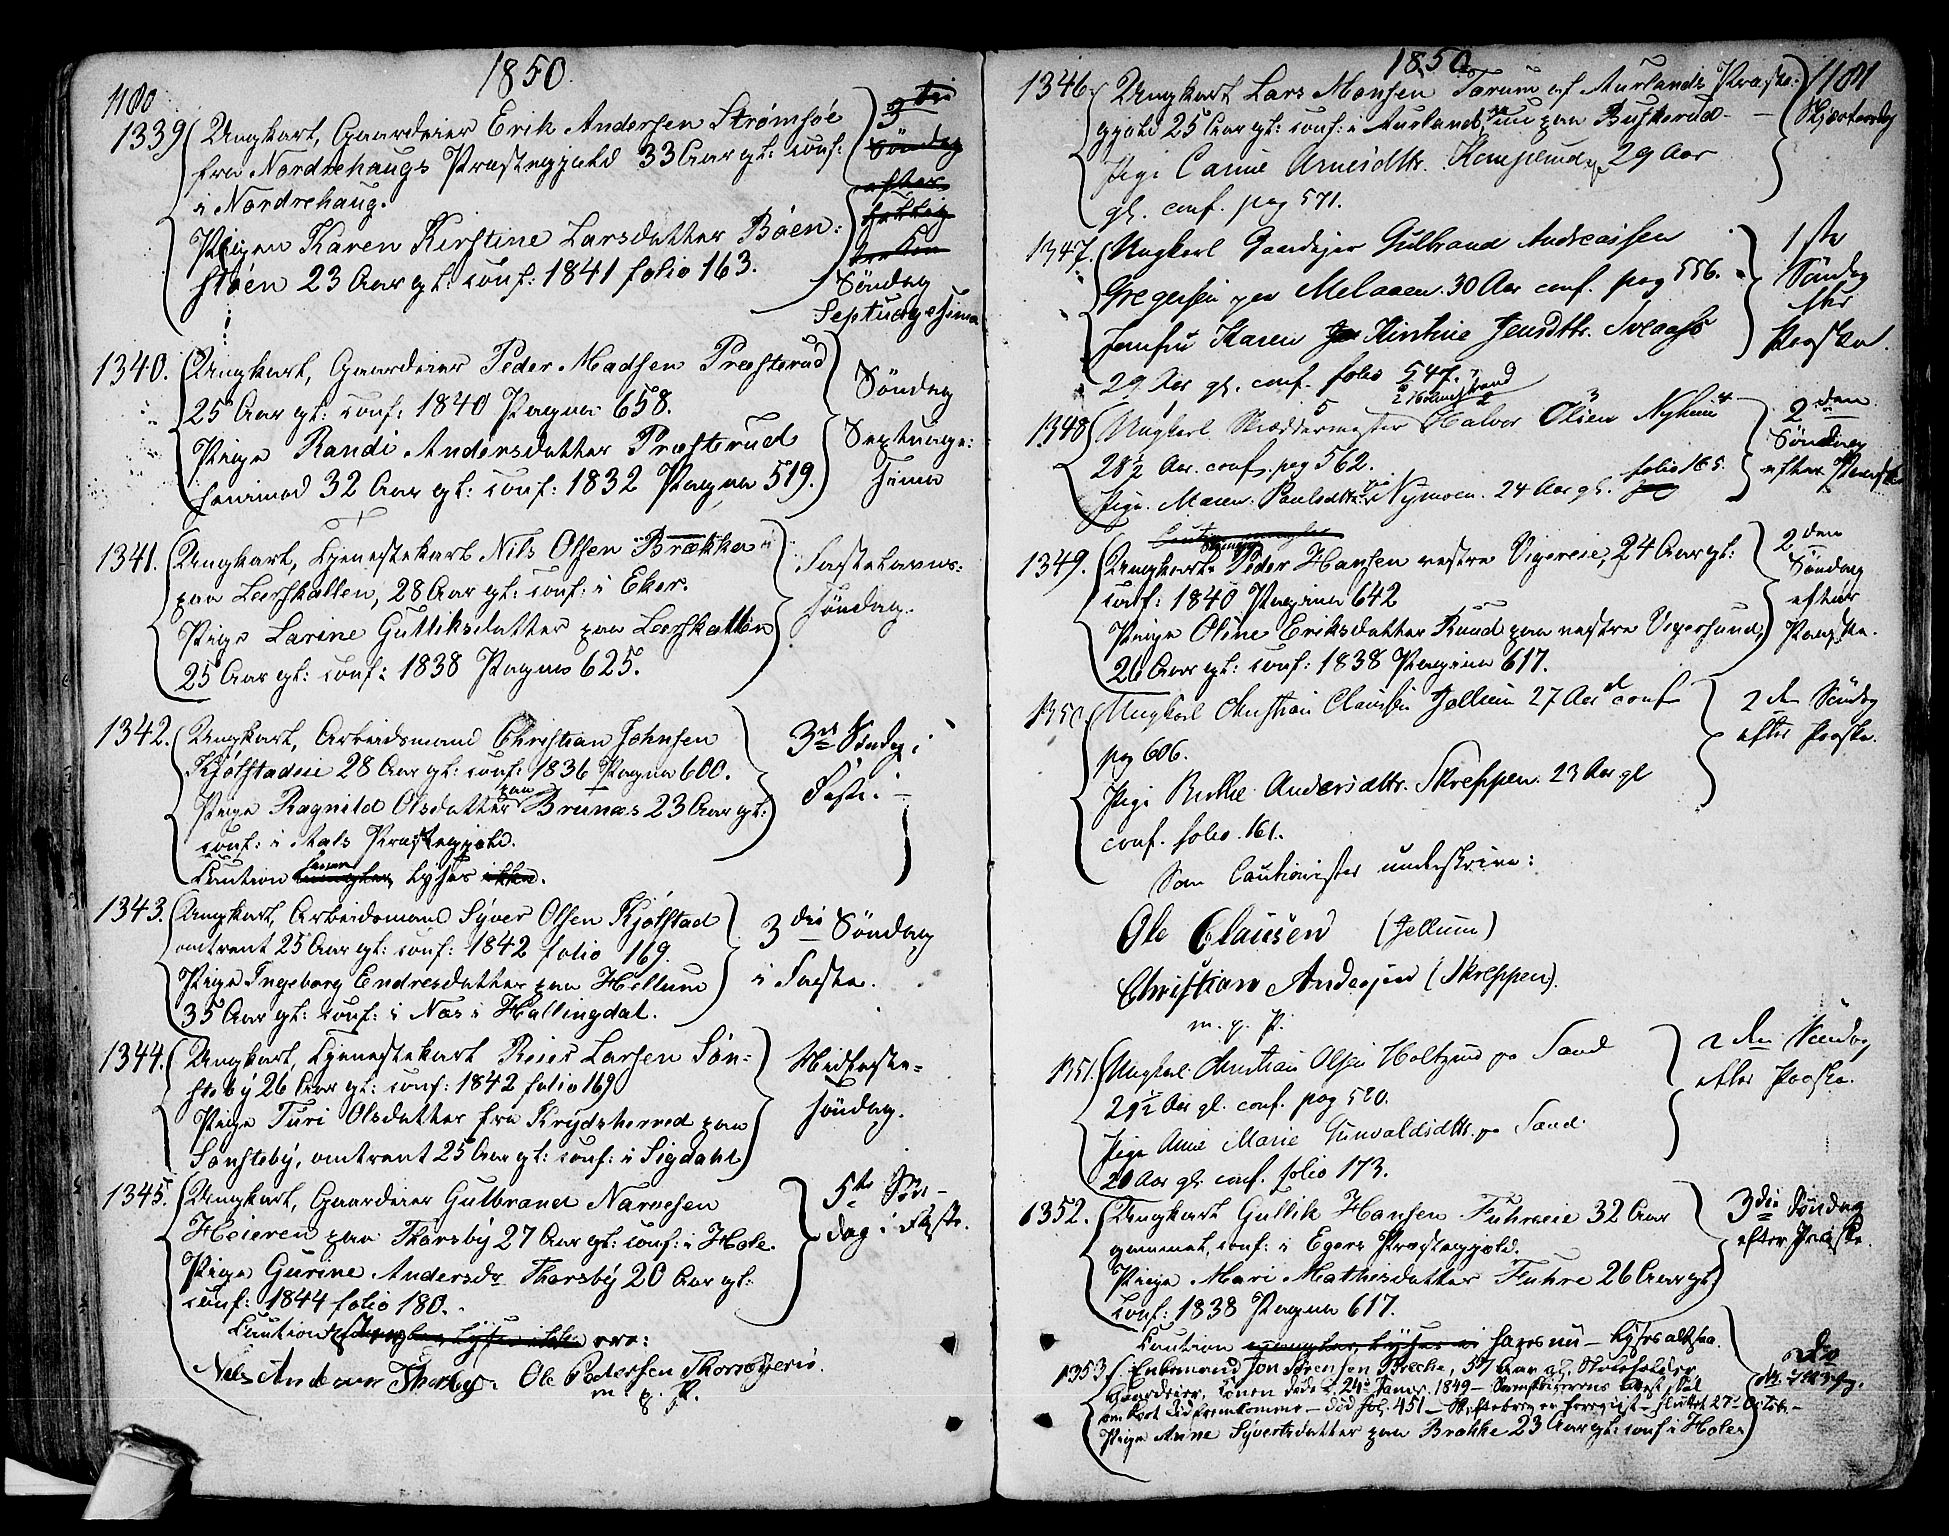 1180
1850
1339 Ungkarl, Gaardeier Erik Andersen Strømsöe
fra Nordrehaugs Præstegjæld 33 Aar gl: conf:
i Nordrehaug.
Pigen Karen Kirstine Larsdatter Böen:
stöen 23 Aar gl: conf: 1841 folio 163.
3die
Søndag
efter
hellig
Søndag
Septuagesima
1340. Ungkarl, Gaardeier Peder Madsen Præsterud
25 Aar gl: conf: 1840 Pagina 658.
Pige Randi Andersdatter Præsterud
32 Aar gl: conf: 1832 Pagina 519.
Søndag
Septuage:
sima
1341. Ungkarl, Tjenestekarl Nils Olsen Brækka
paa Leerskallen, 28 Aar gl: conf: i Eker.
Pige Larine Gulliksdatter paa Leerskallen
25 Aar gl: conf: 1838 Pagina 625.
Fastelavns:
söndag.
1342. Ungkarl, Arbeidsmand Christian Johnsen
Kjölstadeie 28 Aar gl: conf: 1836 Pagina 600.
Pige Ragnild Olsdatter paa Brunæs 23 Aar gl:
conf: i Aals Præstegjæld.
Caution lyses
3die Søndag i
Faste.
1343. Ungkarl, Arbeidsmand Syver Olsen Kjölstad
omtrent 25 Aar gl: conf: 1842 folio 169.
Pige Ingeborg Endresdatter paa Hellum
35 Aar gl: conf: i Næs i Hallingdal.
3die Søndag
i Faste.
1344. Ungkarl, Tjenestekarl Reier Larsen Søn:
steby 26 Aar gl: conf: 1842 folio 169
Pige Turi Olsdatter fra Krydsherred paa
Sønsteby, omtrent 25 Aar gl: conf: i Sigdahl
Midfaste-
söndag.
1345. Ungkarl, Gaardeier Gulbrand Narvesen
Heieren paa Thorsby 27 Aar gl: conf: i Hole.
Pige Gurine Andersdr Thorsby 20 Aar gl:
conf: 1844 folio 180.
Caution
Nils Andersen Thorsby. Ole Pedersen
m. p. P.
5te Søn-
dag i Faste.
1850
1181
1346. Ungkarl Lars Monsen Torum af Aurlands Præste:
gjæld 25 Aar gl: conf: i Aurland, nu paa Buskerud
Pige Carine Arnesdttr. 29 Aar
gl. conf. pag 571.
Skjærtorsdag
1347. Ungkarl Gaardejer Gulbrand Andreassen
Gregersen paa Melaaen. 30 Aar conf. pag 556.
Jomfru Karen Kirstine Jensdttr. Svlaass
29 Aar gl. conf. folio 547.
1ste
Søndag
efter
Paaske.
1348 Ungkarl Skræddermester Halvor Olsen
28½ Aar. conf. pag 562.
Pige Maren Paulsdttr Nymoen. 24 Aar gl. folio 165.
2den
Søndag
efter Paaske
1349. Ungkarl Peder Hansen vestre Vigereie, 24 Aar gl:
conf: 1840 Pagina 642
Pige Oline Eriksdatter Ruud paa vestre Vigersund,
26 Aar gl: conf: 1838 Pagina 617.
2den
Søndag
efter
Paaske.
1350. Ungkarl Christian Claussen Jellum 27 Aar conf
pag 606.
Pige Berthe Andersdttr. Skreppen. 23 Aar gl
conf. folio 161.
2den Søndag
efter Paaske.
Som Cautionister underskrive:
Ole Clausen (Jellum)
Christian Andersen (Skreppen).
m. p. P.
1351. Ungkarl Christian Olsen pa Sand
29½ Aar gl. conf. pag 520.
Pige Anne Marie Gunvaldsdttr. pa Sand
20 Aar gl. conf. folio 173.
2den Søndag
efter Paaske.
1352. Ungkarl Gullik Hansen Fuhreeie 32 Aar
gammel, conf: i Egers Præstegjæld.
Pige Mari Mathisdatter Fuhre 26 Aar gl:
conf: 1838 Pagina 617.
Caution
3die Søndag
efter Paaske.
1353 Enkemand Jon Sörensen Brecke, 57 Aar gl,
Gaardeier, Konen døde d. 24de Januar 1849
451 27de Octob.
Pige Anne Syvertsdatter paa Brække 23 Aar gl: conf i Holen